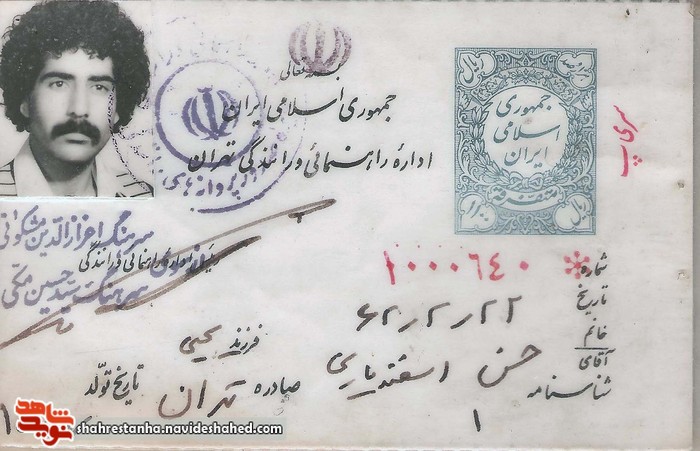 بسمه تعالی
جمهوری اسلامی ایران
اداره راهنمائی و رانندگی تهران
ریال
جمهوری
اسلامی
ایران
متفرقه
ریال
سری پ
سرهنگ احزازالدین مشکواتی
رئیس اداره راهنمائی و رانندگی
سرهنگ سید حسین مکی
شماره * ۱۰۰۰۶۴۰
تاریخ ۶۲/۲/۲۲
خانم
آقای حسن اسفندیاری فرزند یحیی
شناسنامه ۱ صادره تهران تاریخ تولد
شاهد
نوید
shahrestanha.navideshahed.com